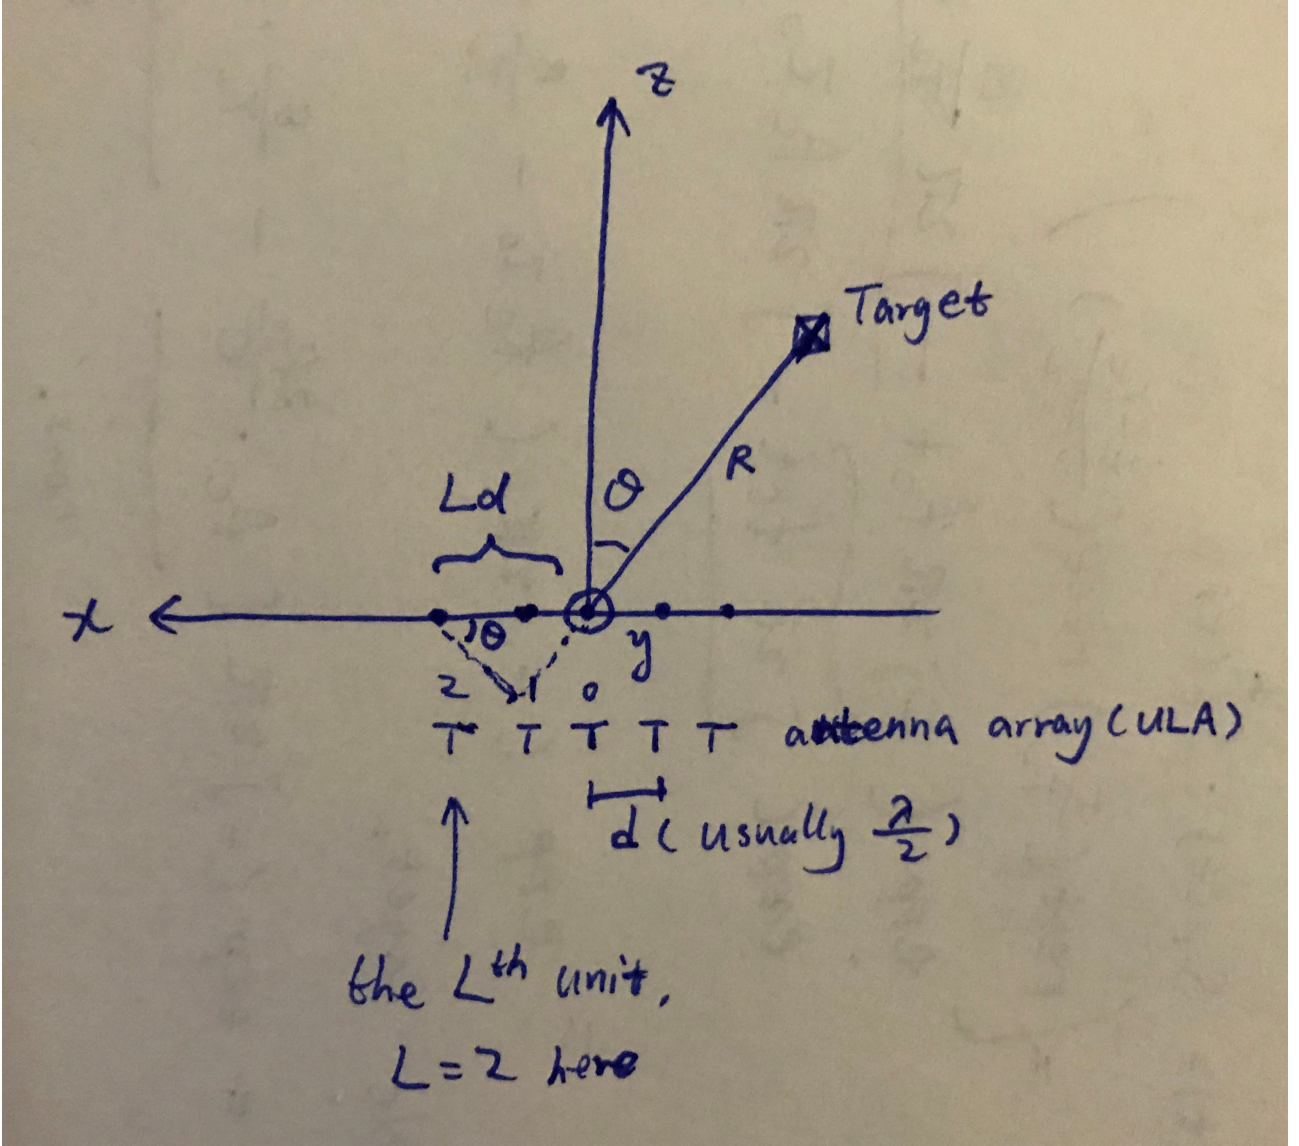 z
Target
R
Ld
θ
x
θ
y
2 1 0
T T T T T antenna array (ULA)
d ( usually λ/2 )
the Lth unit,
L = 2 here